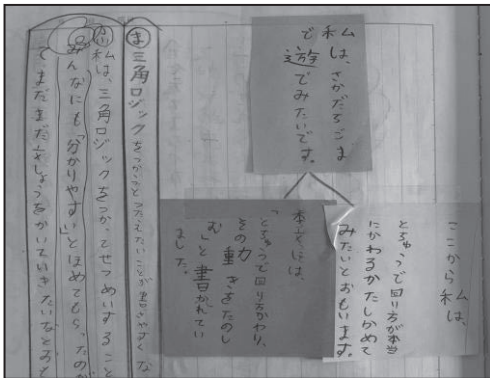 私は、さかだちごま
で遊でみたいです。
ここから私は、
とちゅうで回り方が本当
にかわるかたしかめて
みたいとおもいます。
本文には、
「とちゅうで回り方かわり、
その動きをたのし
む」と書かれてい
ました。
ま 三角ロジックをつかうとつたえたいことが書きやすくな
私は、三角ロジックをつかってせつめいすること
みんなにも「分かりやすい」とほめてもらったのが
て、まだまだ文しょうをかいていきたいなとおも